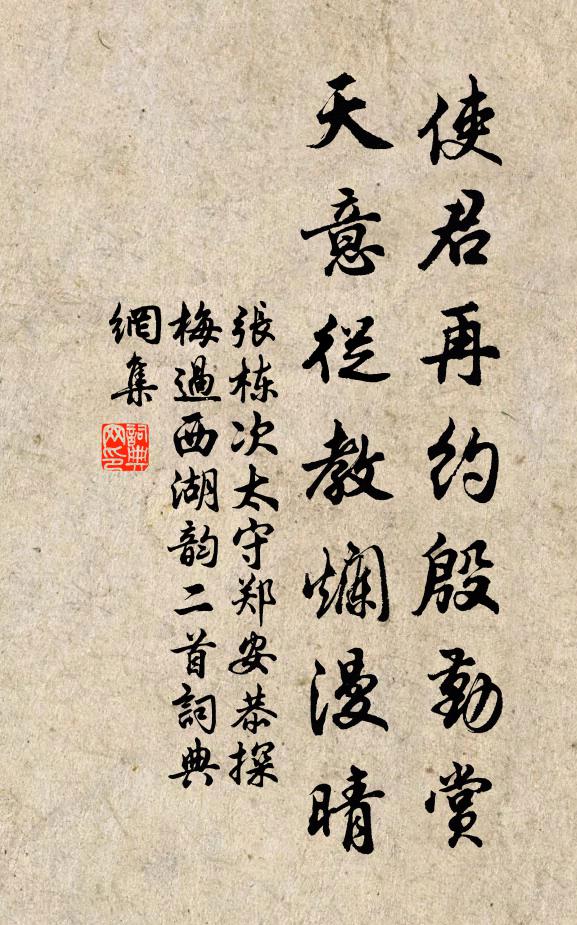 使君再约殷勤赏
天意從教爛漫晴
張栋次太守郑安恭探
梅過西湖韵二首詞典
網集
詞典
网印